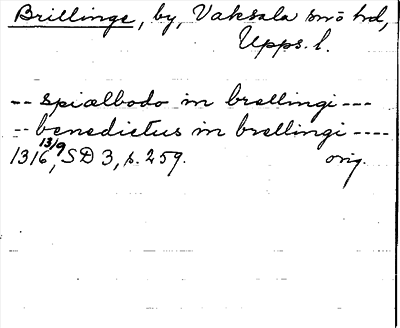 Brillinge, by, Vaksala sn o hd,
Upps. l.
-- spiælbodo in brællingi ---
-- benedictus in brællingi ----
1316 13/9, SD 3, s. 259. orig.